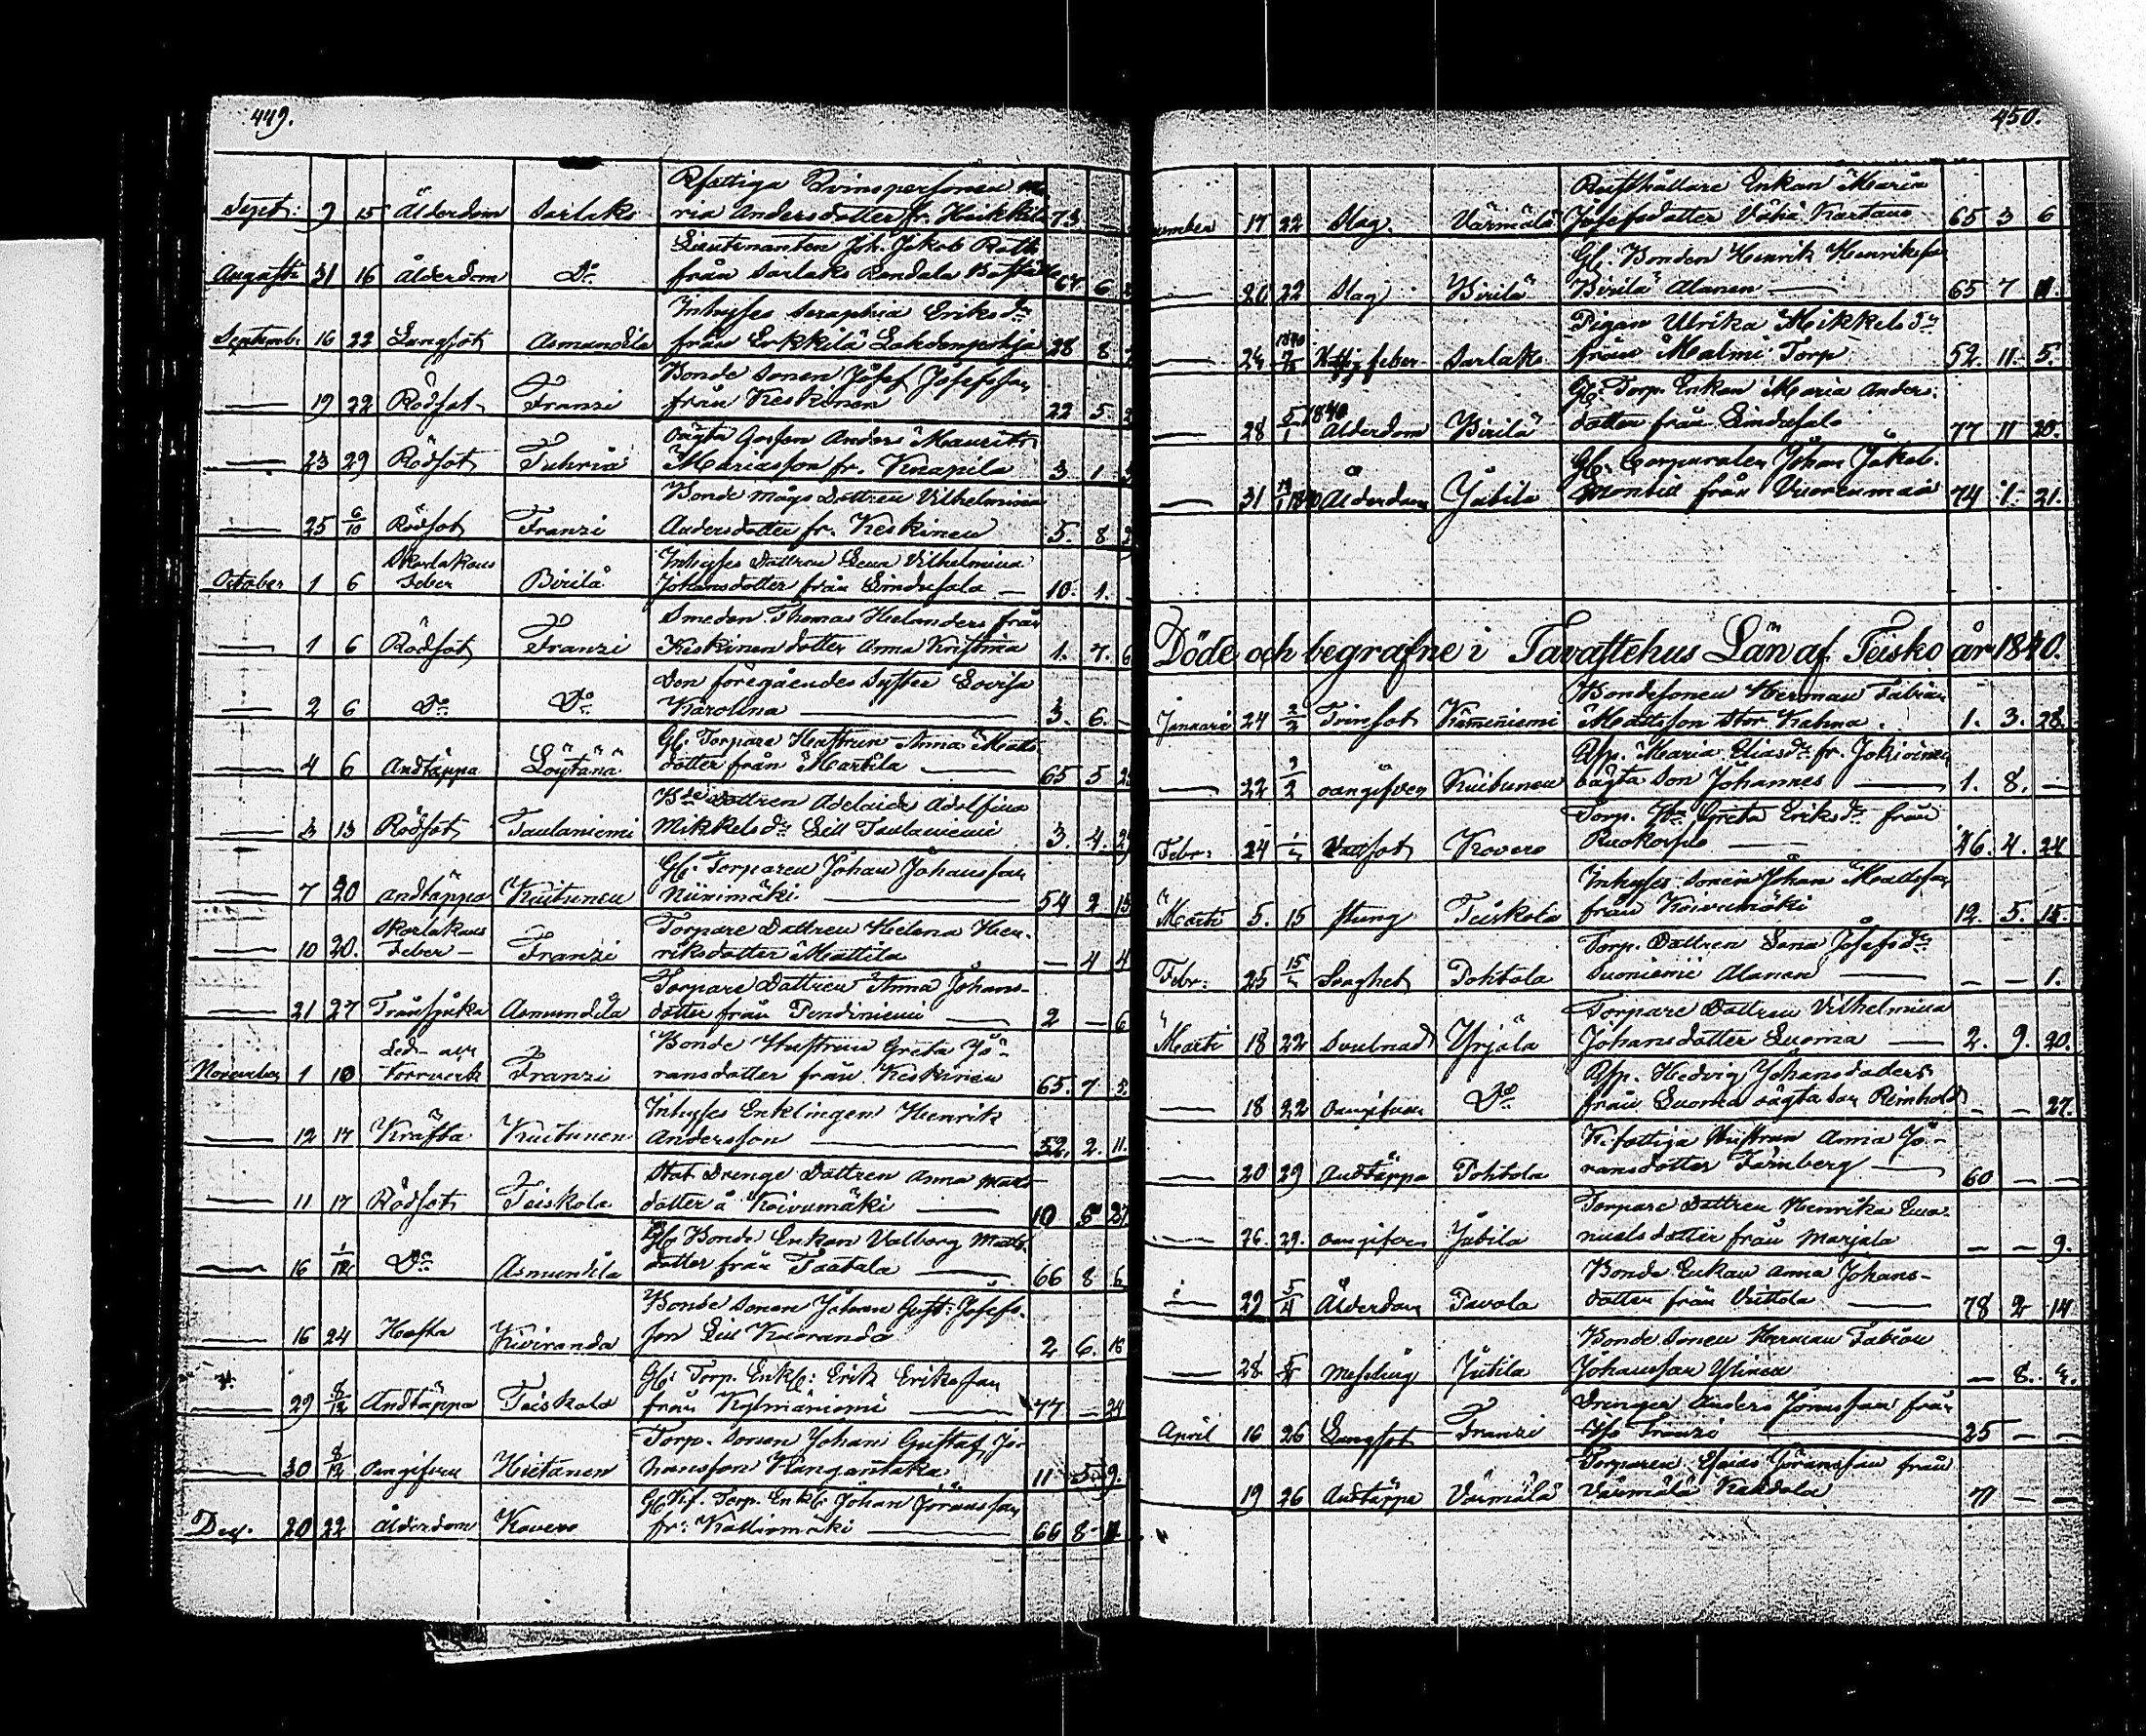 449.
Rfattiga Qvinspersonen Ma
Sept: 9 15 Ålderdom Sarlaks ria Andersdotter fr. Heikkilä 73
Lieutenanten Joh. Jakob Roth
Augusti 31 16 Ålderdom Do från Sarlaks Rendala 67 6
Inhyses Seraphia Eriksdr
Septemb: 16 22 Lungsot Asmundila från Erkkilä Lahdenpohja 28 8
Bonde Sonen Josef Josefsson
19 22 Rödsot Franzi från Keskinen 22 5
Oägta Gossen Anders Maurits
23 29 Rödsot Tuhria Mariasson fr. Knapila 3 1
Bonde mågs Dottren Vilhelmina
25 6/10 Rödsot Franzi Andersdotter fr. Keskinen 5. 8
Skarlakans Inhyses Dottren Lena Vilhelmina
October 1 6 Feber Birilä Johansdotter från Lindusala 10. 1.
Smeden Thomas Helanders från
1 6 Rödsot Franzi Keskinen dotter Anna Kristina 1. 7. 6
Den föregåendes Syster Lovisa
2 6 Do Do Karolina 3. 6.
Gl. Torpare Hustrun Anna Matts
4 6 Andtäppa Löytänä dotter från Marttila 65 5
Bde dottren Adelaide Adolfina
3 13 Rödsot Taulaniemi Mikkelsdr Lill Taulaniemi 3. 4.
Gl. Torparen Johan Johansson
7 20 Andtäppa Kuitunen Niinimäki 54 2 15
Skarlakans Torpare Dottren Helena Hen-
10 20. Feber Franzi riksdotter Mattila 4 4
Torpare Dottren Anna Johans-
21 27 Trånsjuka Asmundila dotter från Pendiniemi 2 6
Led- ock Bonde Hustrun Greta Jö-
November 1 10 Torrverk Franzi ransdotter från Keskinen 65. 7 5.
Inhyses Enklingen Henrik
12 17 Kräfta Kuitunen Andersson 52. 2. 11.
Stat Drengs Dottren Anna Matts
11 17 Rödsot Teiskola dotter å Koivumäki 10 5 27
Gl. Bonde Enkan Valborg Matts
16 1/12 Do Asmundila dotter från Taatala 66 8 6
Bonde Sonen Johan Gust: Josefs-
16 24 Hosta Kiviranda son Lill Kuoranda 2. 6. 16
Gl: Torp. Enkl: Erik Eriksson
29 8/12 Andtäppa Teiskola från Kylmäniemi 77 24
Torp. Sonen Johan Gustaf Jo-
30 8/12 Oangifven Hietanen hansson Kangantaka 11 5. 9.
Gl. Kf. Torp. Enkl: Johan Göransson
Dec. 20 22 Ålderdom Kovero fr: Kalliomäki 66 8 11.
450.
Rusthållare Enkan Maria
cember 17 22 Slag. Värmälä Josefsdotter Vähä Kartano 65 3 6
Gl. Bonden Henrik Henriksson
20 22 Slag Birilä Birilä Alanen 65 7 11.
Pigan Ulrika Mikkelsdr
24 feber Sarlaks från Malmi Torp 52. 11. 5.
Gl. Torp. Enkan Maria Anders-
28 5/1 1840 Ålderdom Birilä dotter från Lindusalo 77 11 20.
Gl. Corporalen Johan Jakob
31 Ålderdom Jutila från Vuorenmaa 74 1. 21.
Döde och begrafne i Tavastehus Län af Teisko år 1840.
Bondesonen Herman Fabian
Januari 24 2/2 Trinsot Kämmeniemi Mattsson Stor Kahna. 1. 3. 28.
Qsp. Maria Eliasdr fr. Jokioinen
22 2/2 oangifven Kuitunen oägta Son Johannes 1. 8.
Torp. Greta Eriksdr från
Febr: 24 Vattsot Kovero 46. 4. 24
Inhyses Sonen Johan Mattsson
Marti 5. 15 Teiskola från Koivumäki 12. 5. 15.
Torp. Dottren Lena Josefsdr
Febr: 25 Svaghet Pohtola Suoniemi Alanen 1.
Torpare Dottren Vilhelmina
Marti 18 22 Svulnad Yrjälä Johansdotter Suoma 2. 9. 20.
Qsp. Hedvig Johansdoters
18 22 Oangifven Do från Suoma oägta Son Reinhold 27.
K. fattiga Hustrun Anna Jö-
20 29 Andtäppa Pohtola ransdotter Färnberg 60
Torpare Dottren Henrika Ema-
26. 29. Oangifven Jutila nuelsdotter från Marjala 9.
Bonde Enkan Anna Johans-
29 5/4 Ålderdom Pavola dotter från Vattola 78 2 14
Bonde Sonen Herman Fabian
28 5/4 Messling Jutila Johansson Ylinen 8.
Drengen Anders Jonasson från
April 16 26 Lungsot Franzi Franzi 25
Torparen Esaias Göransson från
19 26 Andtäppa Värmälä Värmälä Kakdala 71